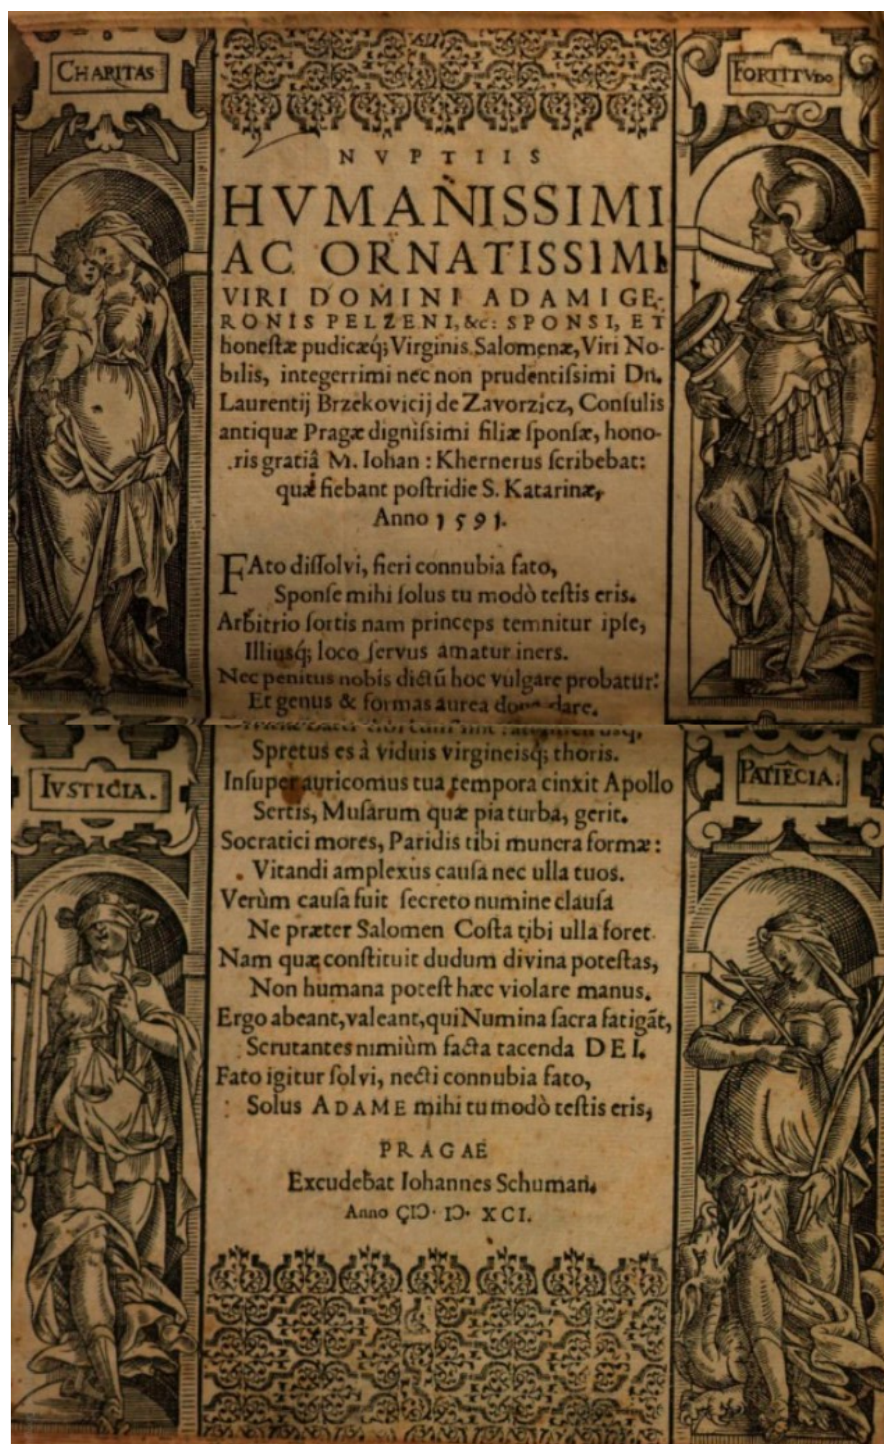 CHARITAS
FORTITVDO
NVPTIIS
HVMANISSIMI
AC ORNATISSIMI
VIRI DOMINI ADAMI GE-
RONIS PELZENI, &c: SPONSI, ET
honeſtæ pudicæq́; Virginis Salomenæ, Viri No-
bilis, integerrimi nec non prudentiſsimi Dn.
Laurentij Brzekovicij de Zavorzicz, Conſulis
antiquæ Pragæ digniſsimi filiæ ſponſæ, hono-
ris gratiâ M. Iohan: Khernerus ſcribebat:
quæ fiebant poſtridie S. Katarinæ,
Anno 1591.
FAto diſſolvi, fieri connubia fato,
Sponſe mihi ſolus tu modò teſtis eris.
Arbitrio ſortis nam princeps temnitur ipſe,
Illiusq́; loco ſervus amatur iners.
Nec penitus nobis dictū hoc vulgare probatur:
Et genus & formas aurea dona dare.
Spretus es à viduis virgineisq́; thoris.
IVSTICIA.
PATIĒCIA.
Inſuper auricomus tua tempora cinxit Apollo
Sertis, Muſarum quæ pia turba, gerit.
Socratici mores, Paridis tibi munera formæ:
Vitandi amplexus cauſa nec ulla tuos.
Verùm cauſa fuit ſecreto numine clauſa
Ne præter Salomen Coſta tibi ulla foret.
Nam quæ conſtituit dudum divina poteſtas,
Non humana poteſt hæc violare manus.
Ergo abeant, valeant, qui Numina ſacra fatigāt,
Scrutantes nimiùm facta tacenda DEI.
Fato igitur ſolvi, necti connubia fato,
Solus ADAME mihi tu modò teſtis eris,
PRAGAE
Excudebat Iohannes Schuman.
Anno CIↃ. IↃ. XCI.